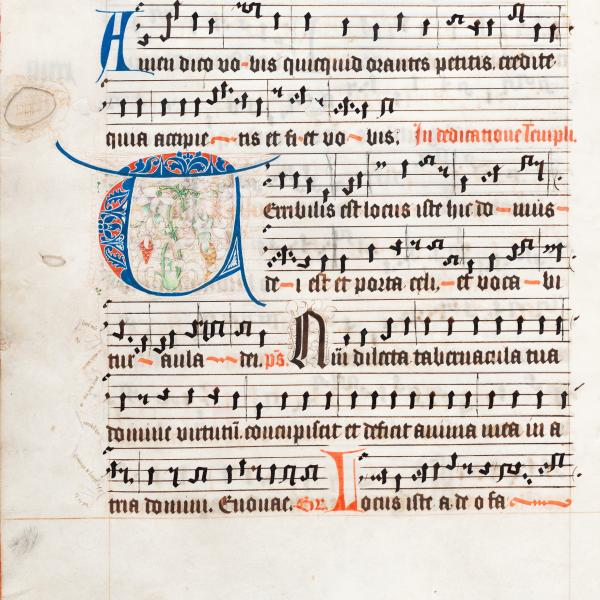 Amen dico vo-bis quicquid orantes petitis. credite
quia accipie-tis et fi-et vo-bis. In dedicatione Templi.
Terribilis est locus iste hic do-mus-
de-i est et porta celi,-et voca-bi
tur-aula-dei. ps. Qui dilecta tabernacula tua
domine virtutū. concupiscit et deficit anima mea in a
tria domini. Euouae. Gr. Locus iste a. de o fa